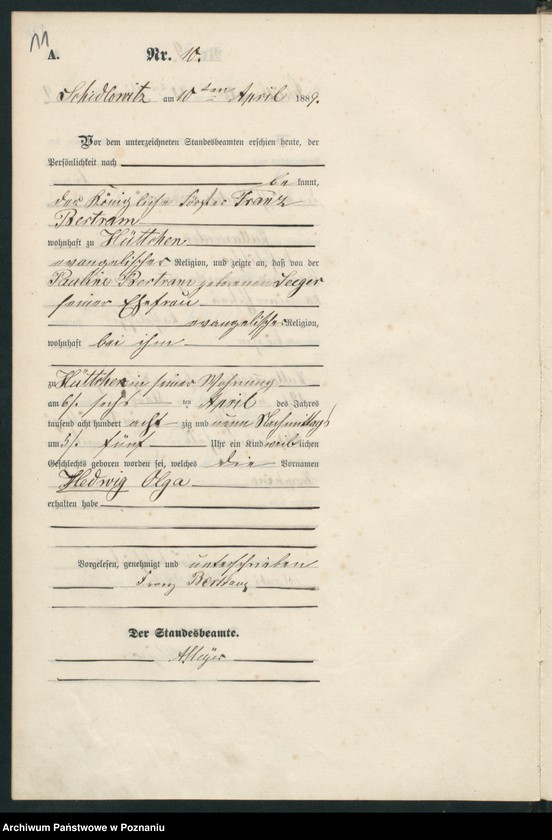 11
A.
Nr. 10.
Schidlowitz am 10ten April 1889.
Vor dem unterzeichneten Standesbeamten erschien heute, der
Persönlichkeit nach
be kannt,
der Königliche Förster Franz
Bertram
wohnhaft zu Hüttchen
evangelischer Religion, und zeigte an, daß von der
Pauline Bertram geborenen Seeger
seiner Ehefrau
evangelischer Religion,
wohnhaft bei ihm
zu Hüttchen in seiner Wohnung
am 6/. sechs ten April des Jahres
tausend acht hundert acht zig und neun Nachmittags
um 5/. fünf Uhr ein Kind weib lichen
Geschlechts geboren worden sei, welches die Vornamen
Hedwig Olga
erhalten habe
Vorgelesen, genehmigt und unterschrieben
Franz Bertram
Der Standesbeamte.
Archiwum Państwowe w Poznaniu